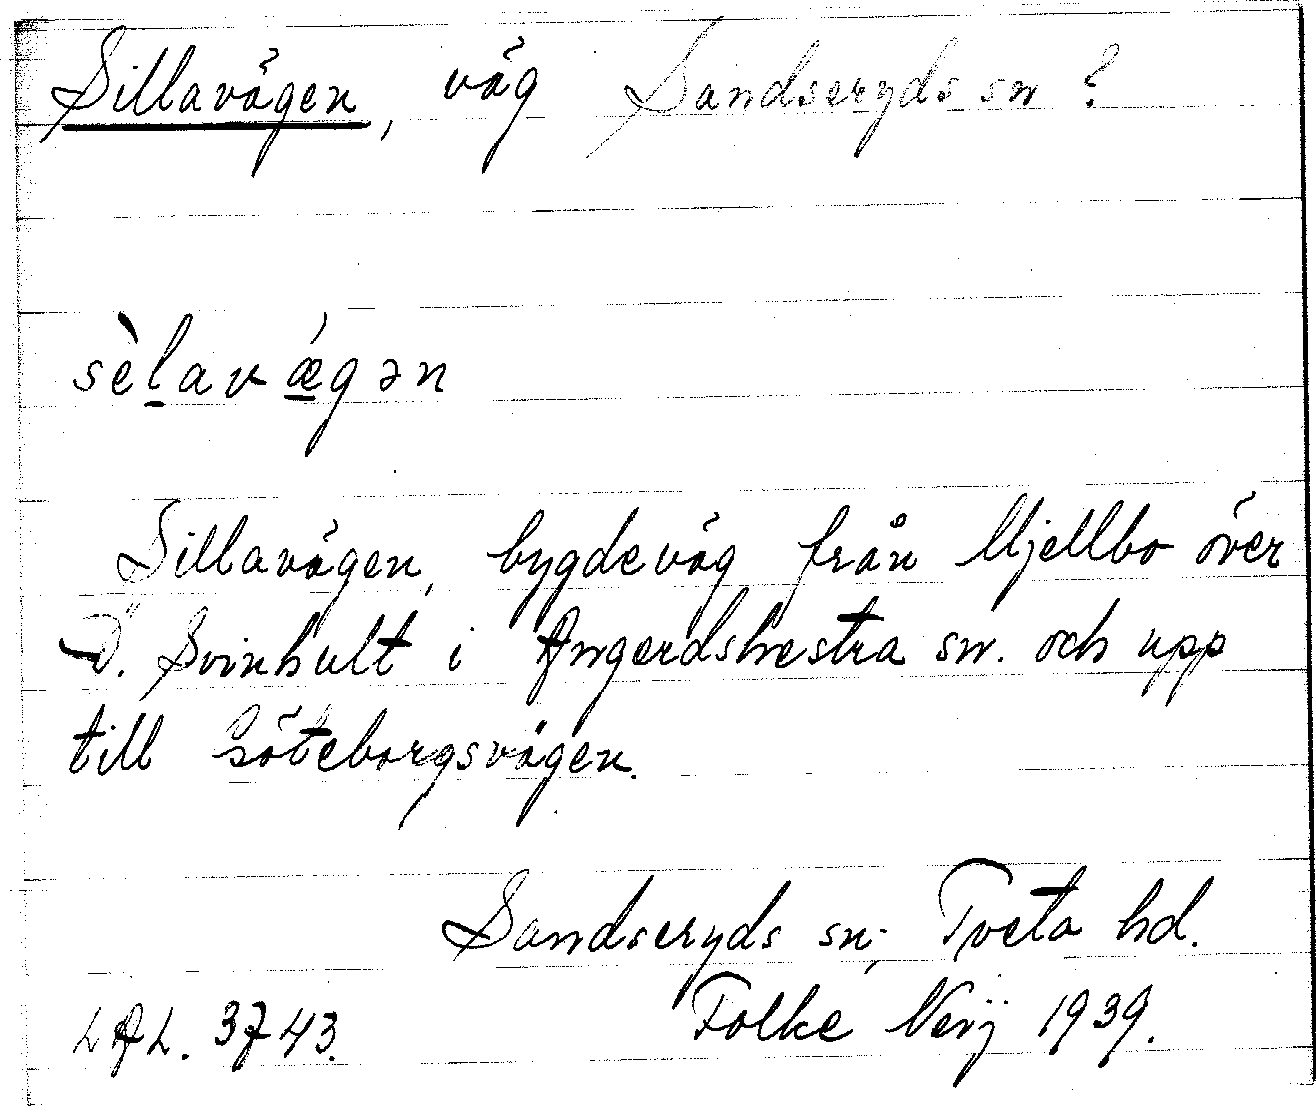 Sillavägen, väg Sandseryds sn ?
sèlavǽgən
Sillavägen, bygdeväg från Mjellbo över
Ö. Svinhult i Angerdshestra sn. och upp
till Göteborgsvägen.
Sandseryds sn; Tveta hd.
LAL. 3743. Folke Nerij 1939.